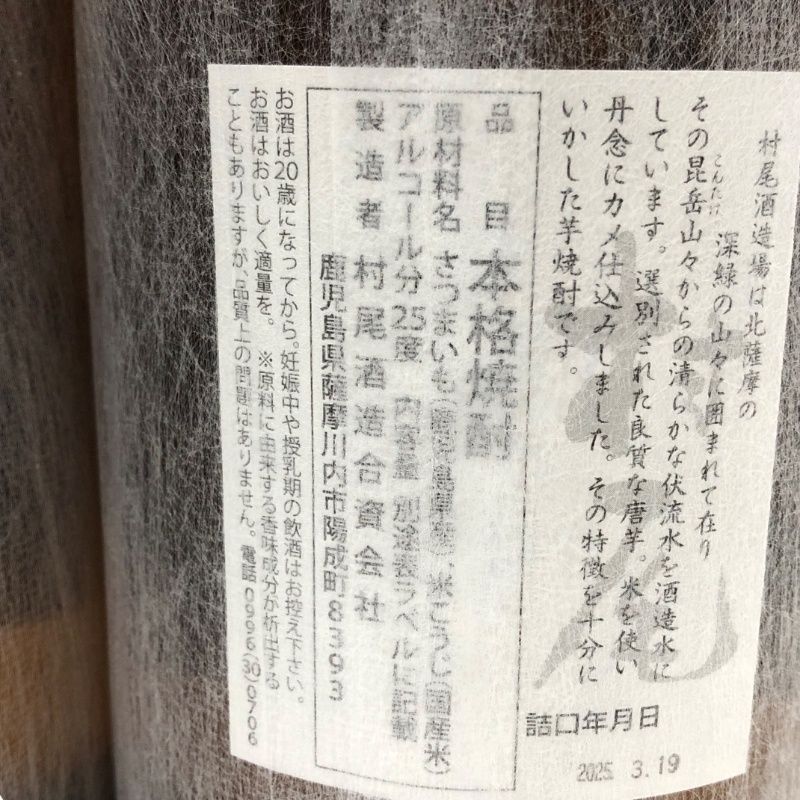 村尾酒造場は北薩摩の
深緑の山々に囲まれて在り
こんたけ
その昆岳山々からの清らかな伏流水を酒造水に
しています。選別された良質な唐芋。米を使い
丹念にカメ仕込みしました。その特徴を十分に
いかした芋焼酎です。
村尾
詰口年月日
2025. 3.19
品目 本格焼酎
原材料名 さつまいも(鹿児島県産)、米こうじ(国産米)
アルコール分 25度 内容量 別途表ラベルに記載
製造者 村尾酒造合資会社
鹿児島県薩摩川内市陽成町8393
お酒は20歳になってから。妊娠中や授乳期の飲酒はお控え下さい。
お酒はおいしく適量を。 ※原料に由来する香味成分が析出する
こともありますが、品質上の問題はありません。電話0996(30)0706